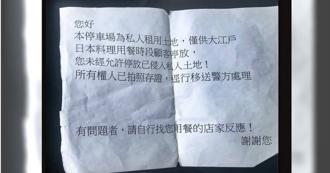 您好
本停車場為私人租用土地，僅供大江戶
日本料理用餐時段顧客停放，
您未經允許停放已侵入私人土地！
所有權人已拍照存證，逕行移送警方處理
有問題者，請自行找您用餐的店家反應！
謝謝您